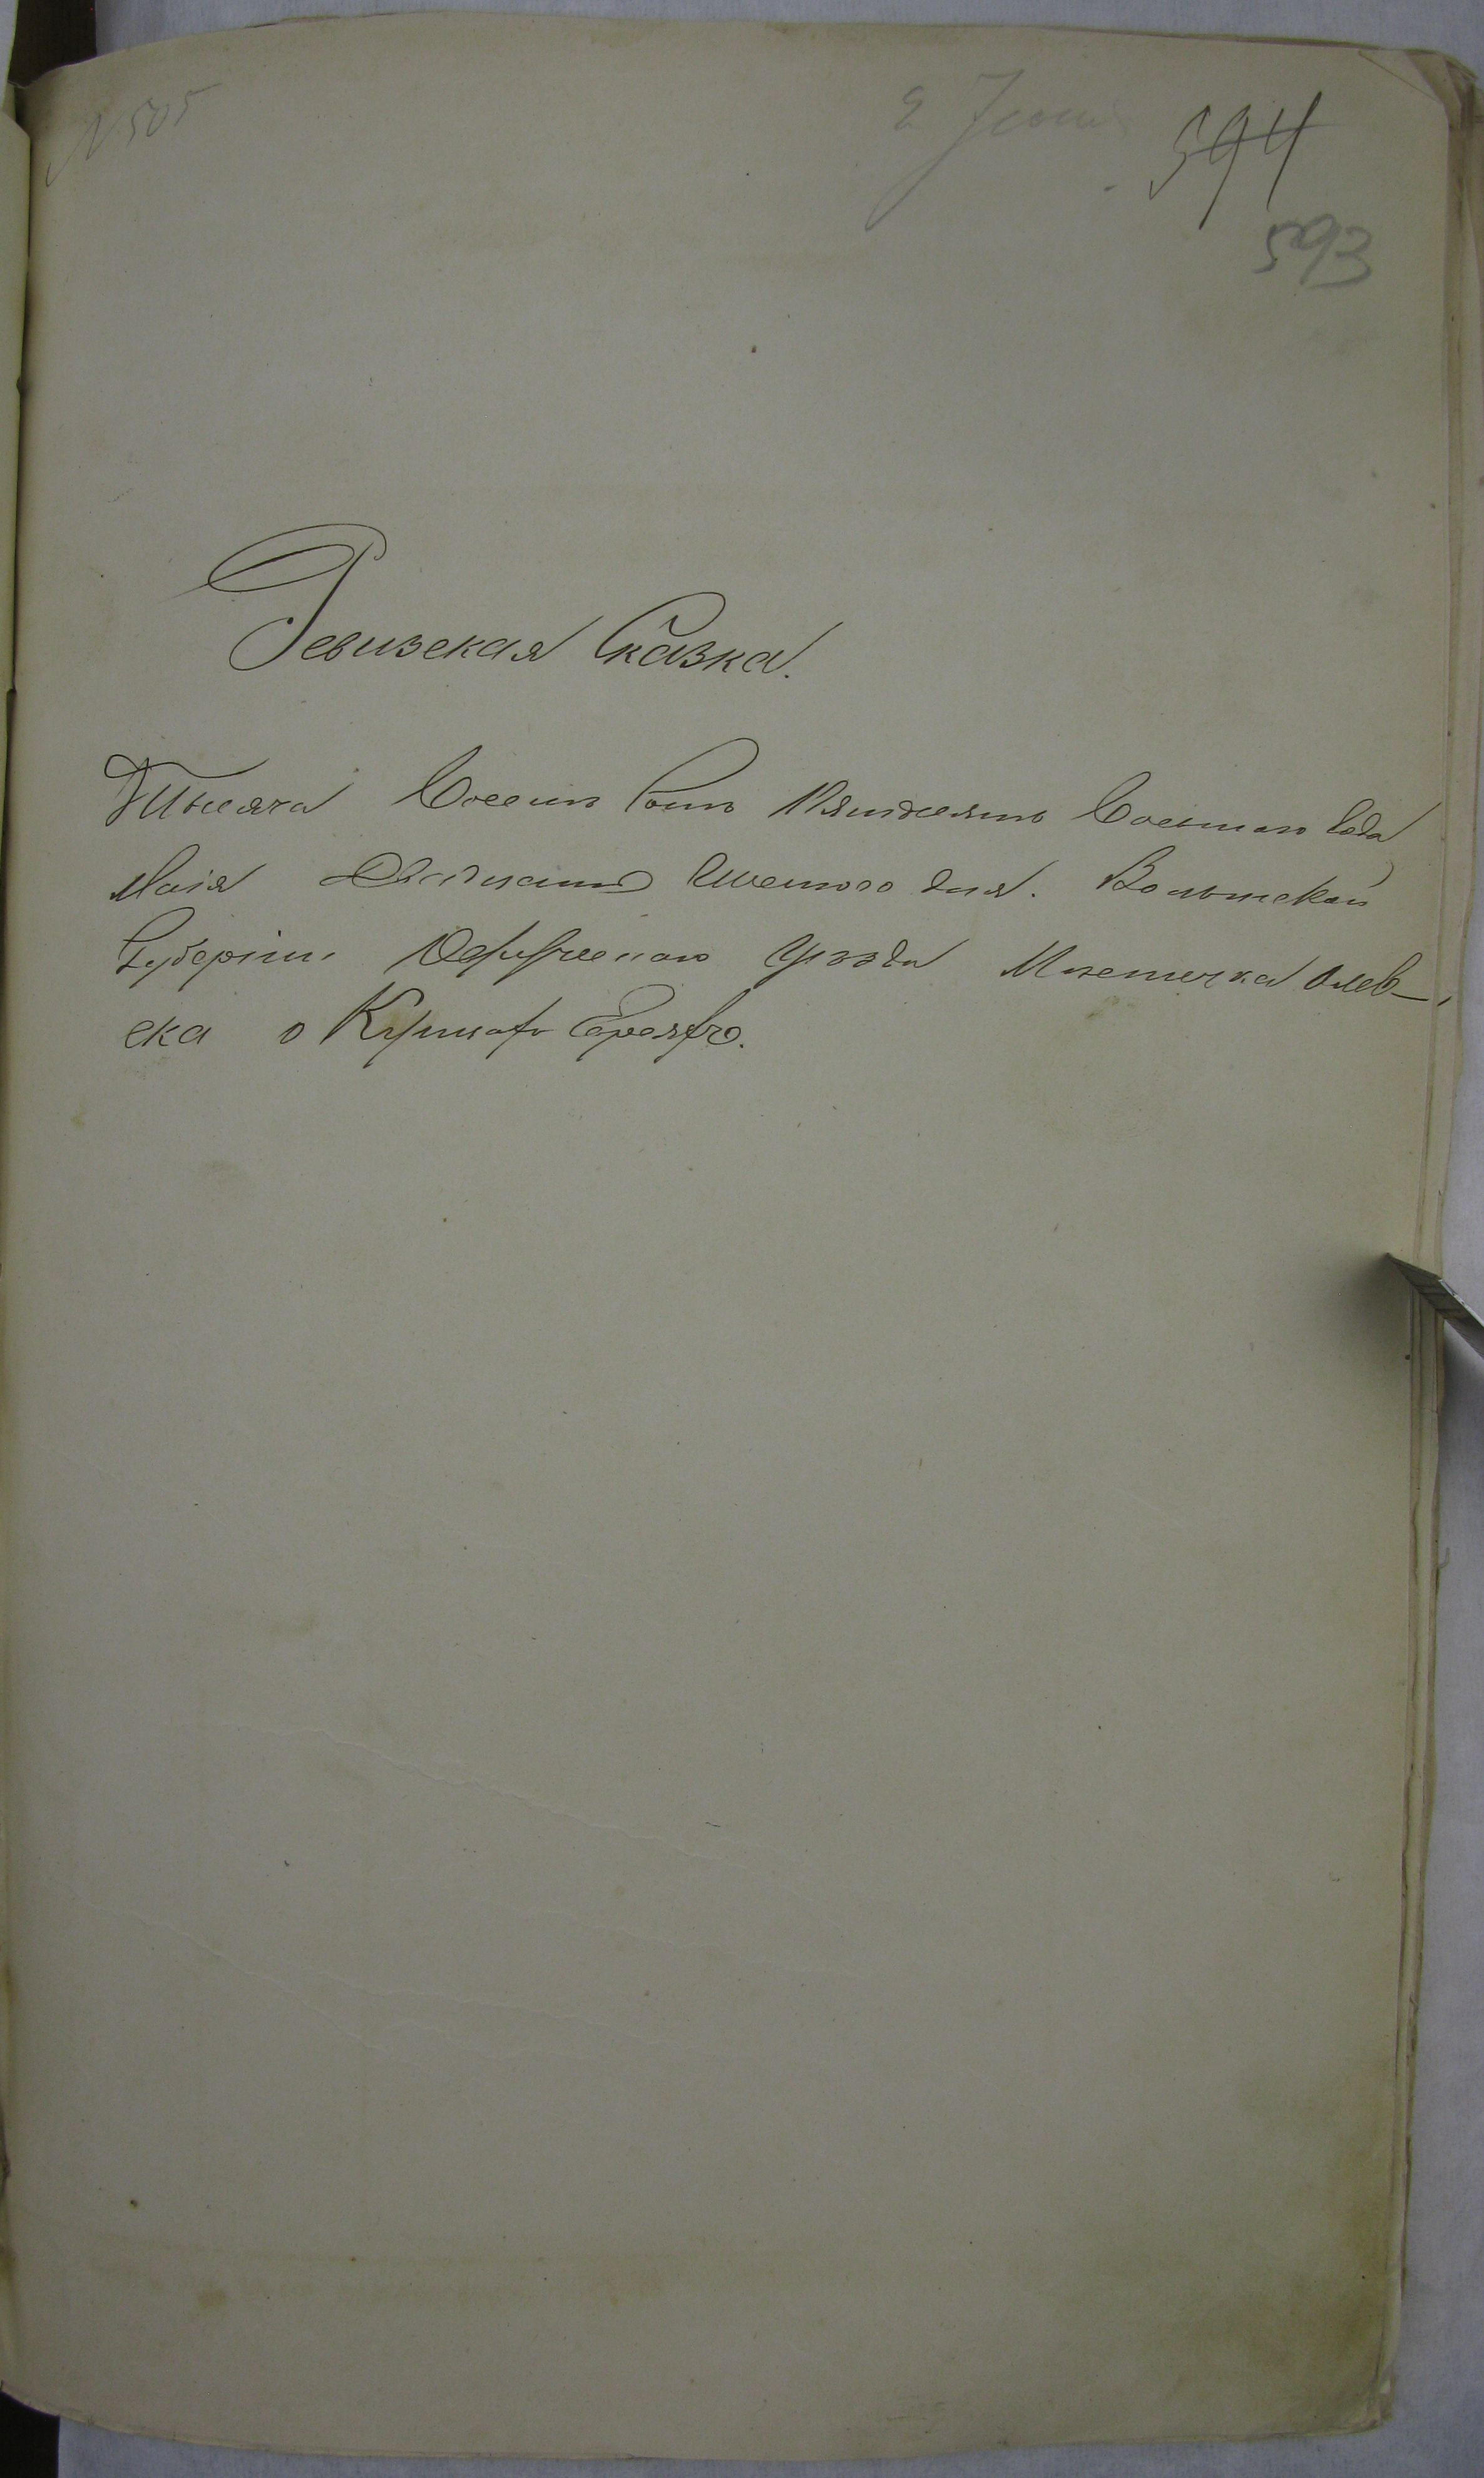 N 505
2 Іюня
594
593
Ревизская Сказка.
Тысяча Восемь Сотъ Пятдесятъ Восьмаго Года
Маія Двадцать Шестого дня. Волынской
Губерніи Овручскаго Уѣзда Мѣстечка Олев-
ска о Купцахъ Евреяхъ.